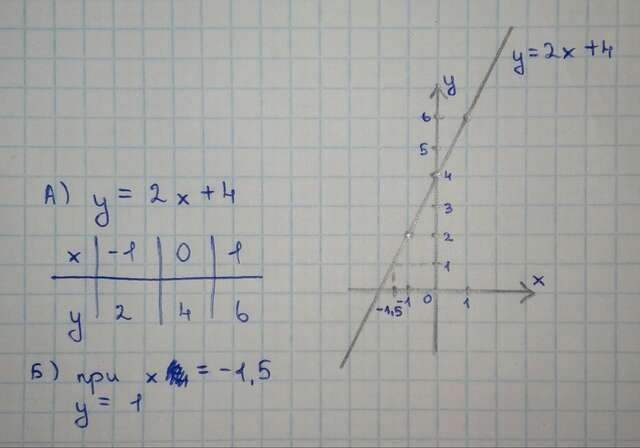 А) y = 2x + 4
x | -1 | 0 | 1
y | 2 | 4 | 6
Б) при x = -1,5
y = 1
y = 2x + 4
y
6
5
4
3
2
1
x
-1,5 -1 0 1